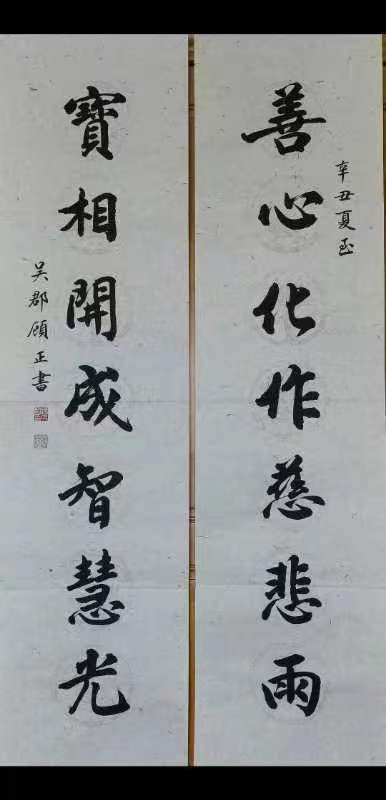 善心化作慈悲雨
辛丑夏至
寶相開成智慧光
吴郡顾正書